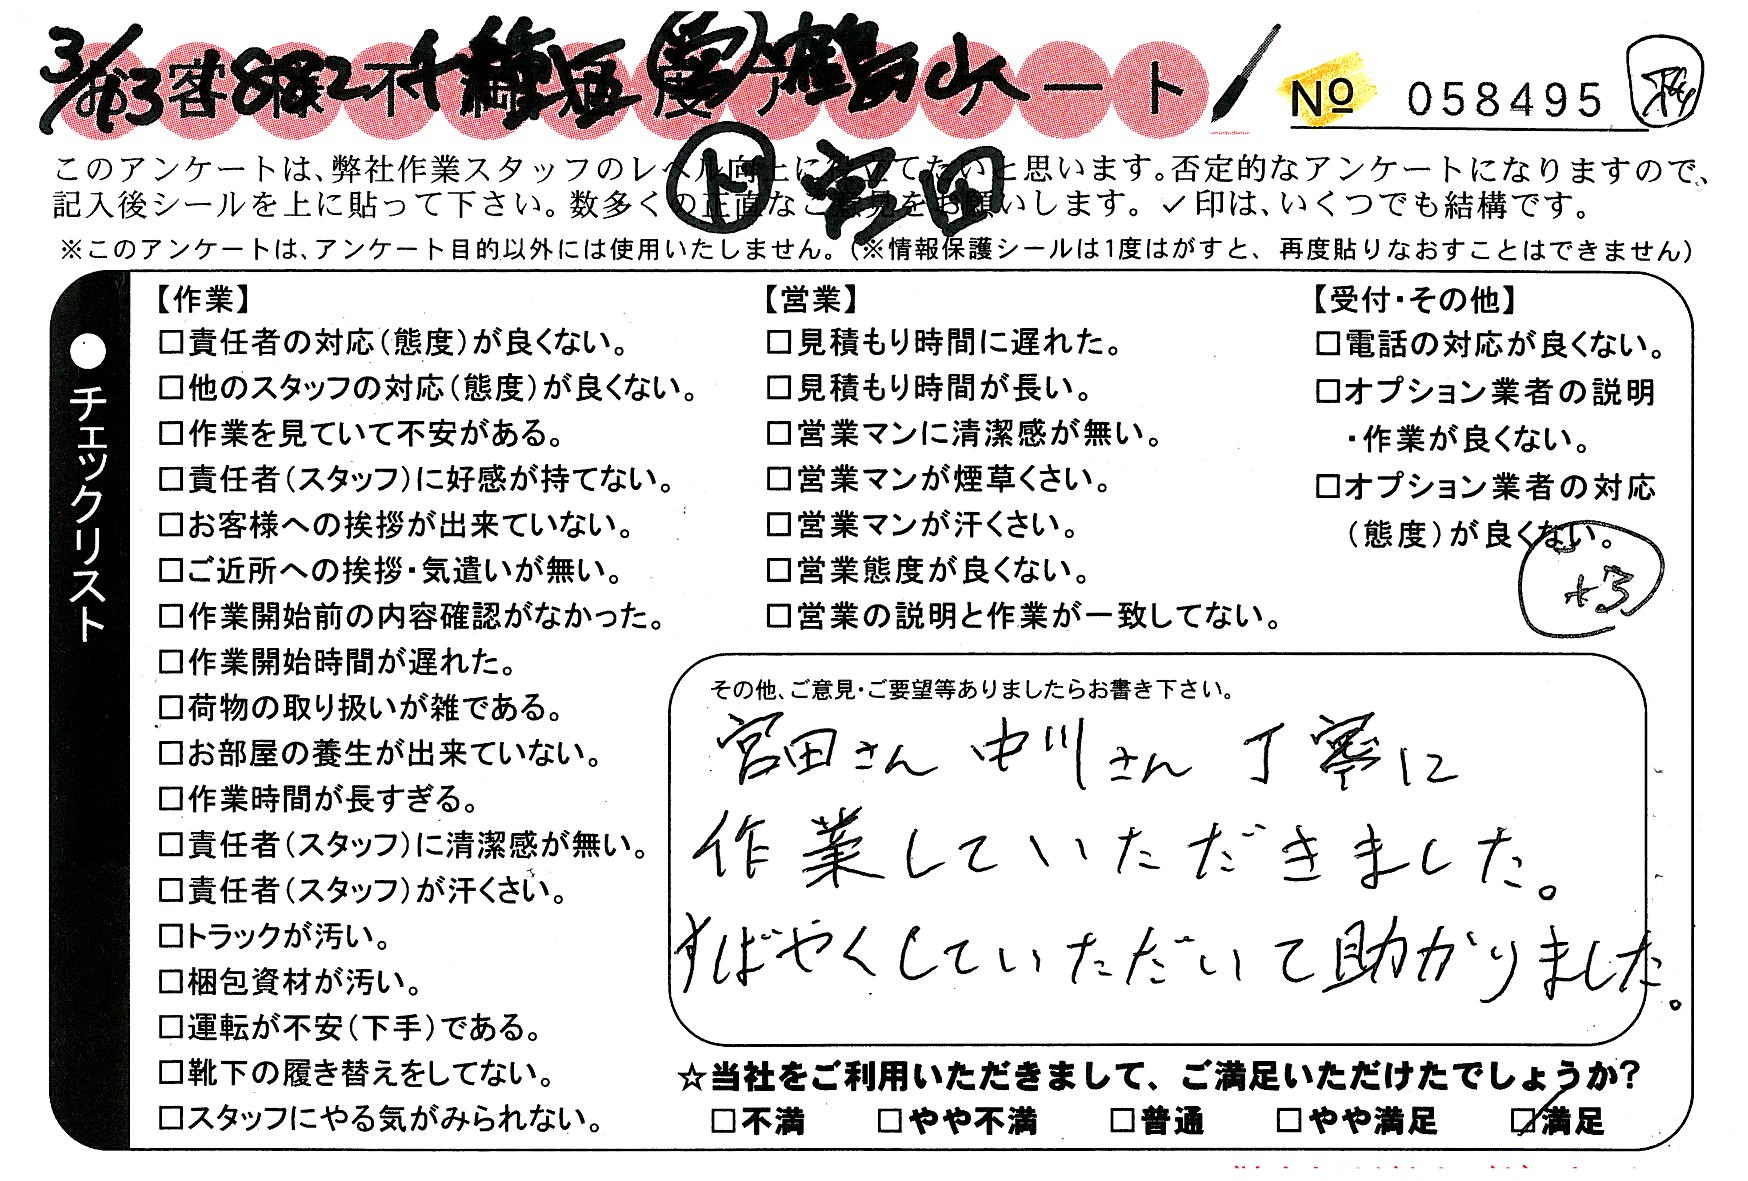 3/63 882 千種区 営 鶴山
お客様不満足度アンケート
No 058495
ト 宮田
このアンケートは、弊社作業スタッフのレベル向上に役立てたいと思います。否定的なアンケートになりますので、
記入後シールを上に貼って下さい。数多くの正直なご意見をお願いします。✓印は、いくつでも結構です。
※このアンケートは、アンケート目的以外には使用いたしません。(※情報保護シールは1度はがすと、再度貼りなおすことはできません)
●チェックリスト
【作業】
□責任者の対応(態度)が良くない。
□他のスタッフの対応(態度)が良くない。
□作業を見ていて不安がある。
□責任者(スタッフ)に好感が持てない。
□お客様への挨拶が出来ていない。
□ご近所への挨拶・気遣いが無い。
□作業開始前の内容確認がなかった。
□作業開始時間が遅れた。
□荷物の取り扱いが雑である。
□お部屋の養生が出来ていない。
□作業時間が長すぎる。
□責任者(スタッフ)に清潔感が無い。
□責任者(スタッフ)が汗くさい。
□トラックが汚い。
□梱包資材が汚い。
□運転が不安(下手)である。
□靴下の履き替えをしてない。
□スタッフにやる気がみられない。
【営業】
□見積もり時間に遅れた。
□見積もり時間が長い。
□営業マンに清潔感が無い。
□営業マンが煙草くさい。
□営業マンが汗くさい。
□営業態度が良くない。
□営業の説明と作業が一致してない。
【受付・その他】
□電話の対応が良くない。
□オプション業者の説明
・作業が良くない。
□オプション業者の対応
(態度)が良くない。
+3
その他、ご意見・ご要望等ありましたらお書き下さい。
宮田さん 中川さん 丁寧に
作業していただきました。
すばやくしていただいて助かりました。
☆当社をご利用いただきまして、ご満足いただけたでしょうか?
□不満 □やや不満 □普通 □やや満足 ☑満足